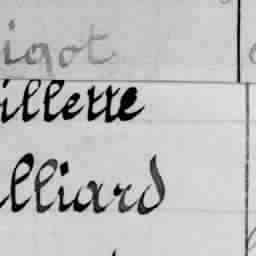 igot
illette
illiard